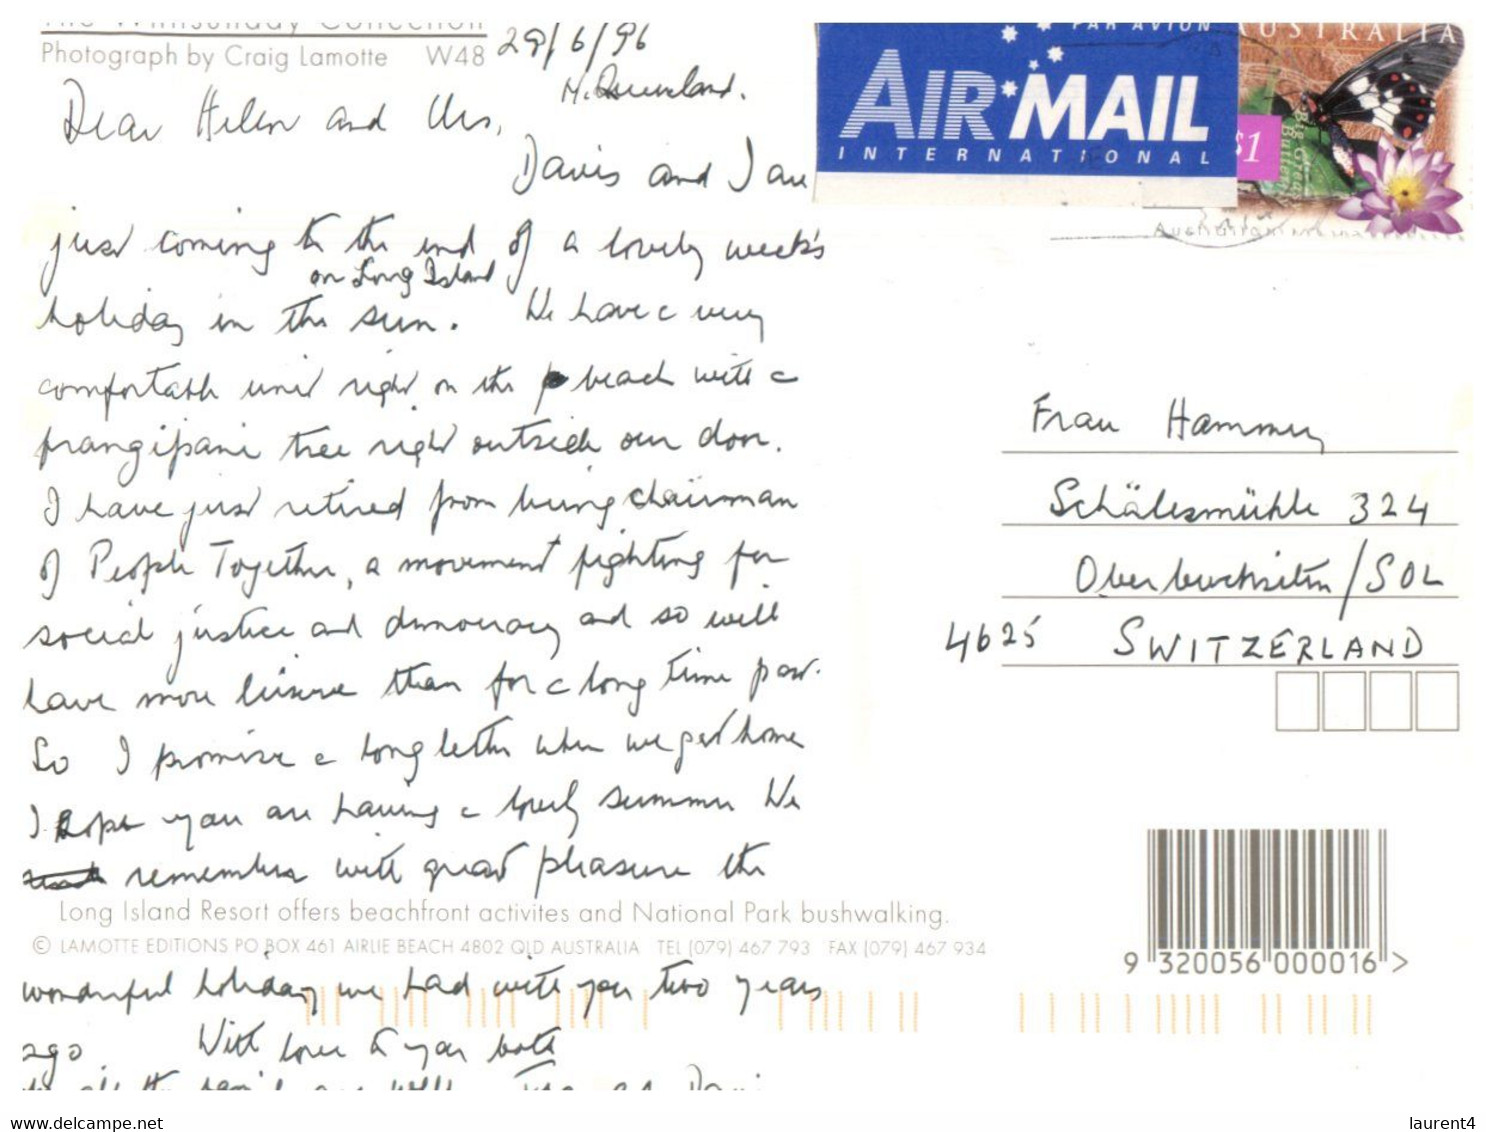 The Whitsunday Collection
Photograph by Craig Lamotte W48
29/6/96
N. Queensland.
Dear Helen and Urs,
Davis and I are
just coming to the end of a lovely week's
on Long Island
holiday in the sun. We have a very
comfortable unit right on the beach with a
frangipani tree right outside our door.
I have just retired from being chairman
of People Together, a movement fighting for
social justice and democracy and so will
have more leisure than for a long time past.
So I promise a long letter when we get home
I hope you are having a lovely summer We
remember with great pleasure the
Long Island Resort offers beachfront activites and National Park bushwalking.
© LAMOTTE EDITIONS PO BOX 461 AIRLIE BEACH 4802 QLD AUSTRALIA TEL (079) 467 793 FAX (079) 467 934
wonderful holiday we had with you two years
ago With love to you both
PAR AVION
AIR MAIL
INTERNATIONAL
AUSTRALIA
$1
Frau Hammer
Schälismühle 324
Oberbuchsiten/SOL
4625 SWITZERLAND
9 320056 000016 >
delcampe.net
laurent4